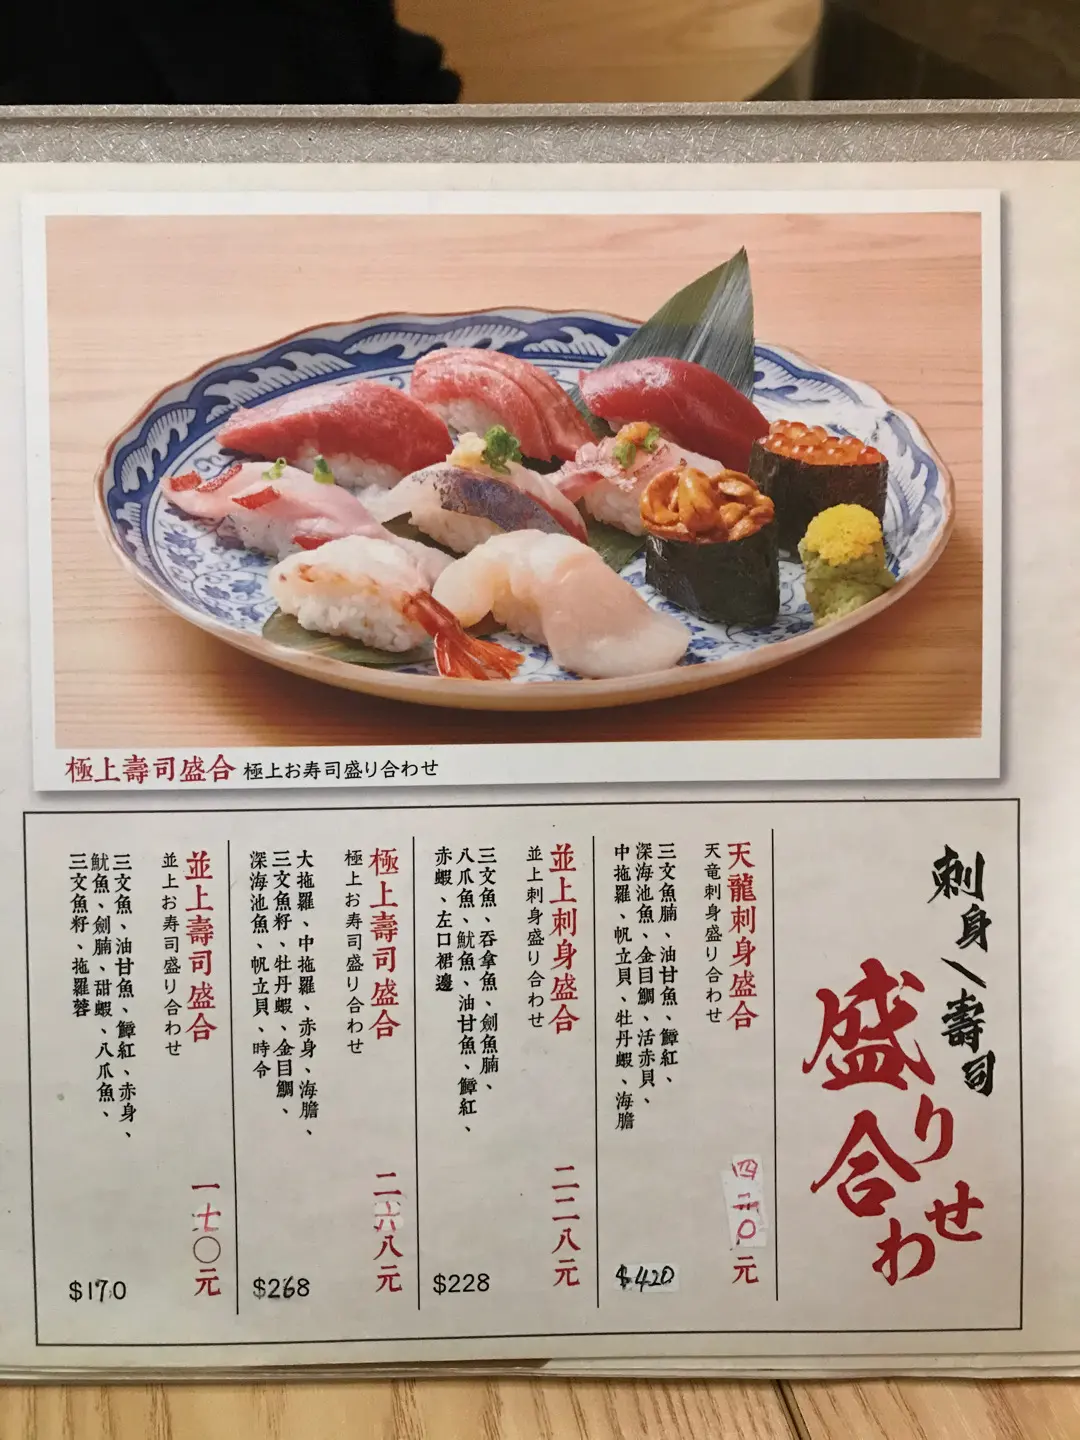 極上壽司盛合 極上お寿司盛り合わせ
刺身／壽司
盛り合わせ
天龍刺身盛合
天竜刺身盛り合わせ
三文魚腩、油甘魚、鱆紅、
深海池魚、金目鯛、活赤貝、
中拖羅、帆立貝、牡丹蝦、海膽
四二0元
$420
並上刺身盛合
並上刺身盛り合わせ
三文魚、吞拿魚、劍魚腩、
八爪魚、魷魚、油甘魚、鱆紅、
赤蝦、左口裙邊
二二八元
$228
極上壽司盛合
極上お寿司盛り合わせ
大拖羅、中拖羅、赤身、海膽、
三文魚籽、牡丹蝦、金目鯛、
深海池魚、帆立貝、時令
二六八元
$268
並上壽司盛合
並上お寿司盛り合わせ
三文魚、油甘魚、鱆紅、赤身、
魷魚、劍腩、甜蝦、八爪魚、
三文魚籽、拖羅蓉
一七〇元
$170